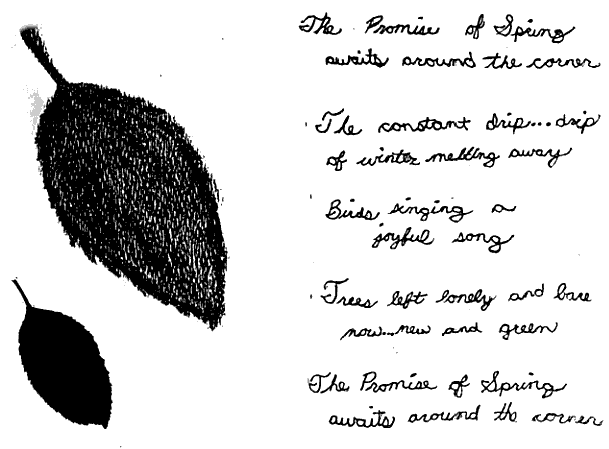 The Promise of Spring
awaits around the corner
The constant drip...drip
of winter melting away
Birds singing a
joyful song
Trees left lonely and bare
now...new and green
The Promise of Spring
awaits around the corner